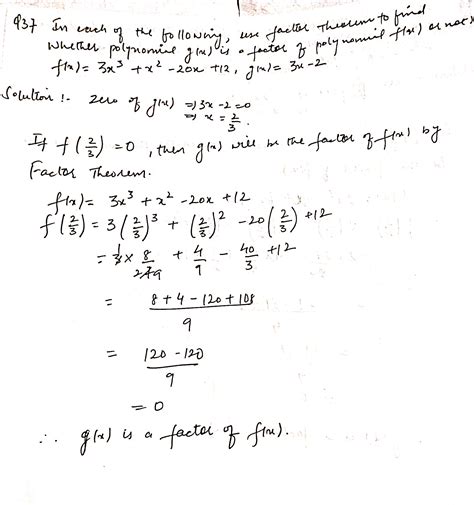 Q37 In each of the following, use factor theorem to find
whether polynomial g(x) is a factor of polynomial f(x) or not
f(x) = 3x³ + x² - 20x + 12, g(x) = 3x - 2
Solution :- zero of g(x) ⇒ 3x - 2 = 0
⇒ x = 2/3.
If f(2/3) = 0, then g(x) will be the factor of f(x) by
Factor Theorem.
f(x) = 3x³ + x² - 20x + 12
f(2/3) = 3(2/3)³ + (2/3)² - 20(2/3) + 12
= 3 × 8/27 9 + 4/9 - 40/3 + 12
= 8 + 4 - 120 + 108 / 9
= 120 - 120 / 9
= 0
∴ g(x) is a factor of f(x).